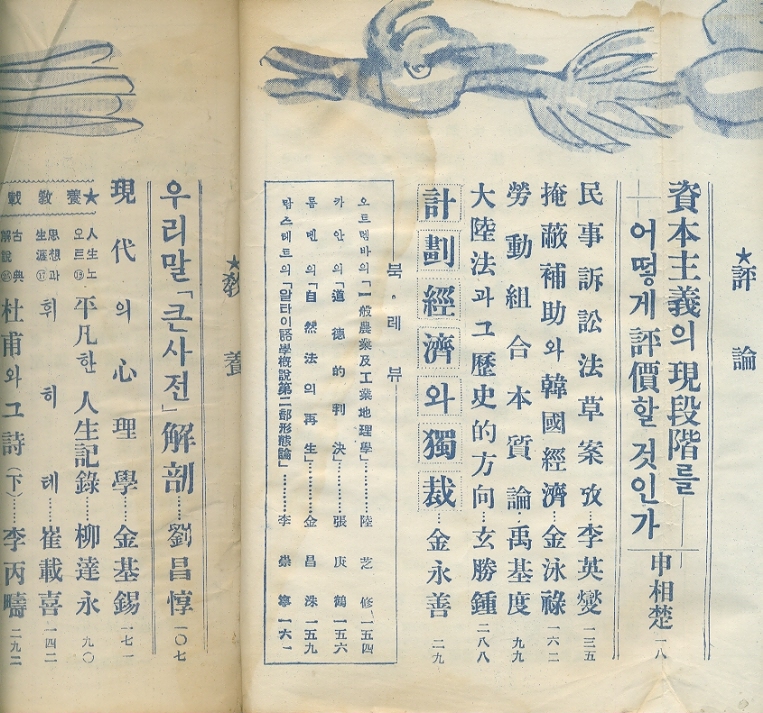 ★評論
資本主義의 現段階를
―어떻게 評價할 것인가―申相楚 一八
民事訴訟法草案攷…李英燮 一三五
掩蔽補助와 韓國經濟…金泳祿 一六二
勞動組合本質論…禹基度 九九
大陸法과 그 歷史的方向…玄勝鍾 二八八
計劃經濟와 獨裁…金永善 二九
북・레뷰
오트렘바의「一般農業及工業地理學」………陸芝修 一五四
카안의「道德的判決」………張庚鶴 一五六
롬멘의「自然法의 再生」………金昌洙 一五九
람스테트의「알타이語學槪說第二部形態論」………李崇寧 一六一
★敎養
우리말「큰사전」解剖…劉昌惇 一〇七
現代의 心理學…金基錫 一七一
★人生노오트⑬ 平凡한 人生記錄…柳達永 九〇
思想과 生涯⑰ 휘히테…崔載喜 一四二
古典解說㉕ 杜甫와 그 詩(下)…李丙疇 二九二
養敎載